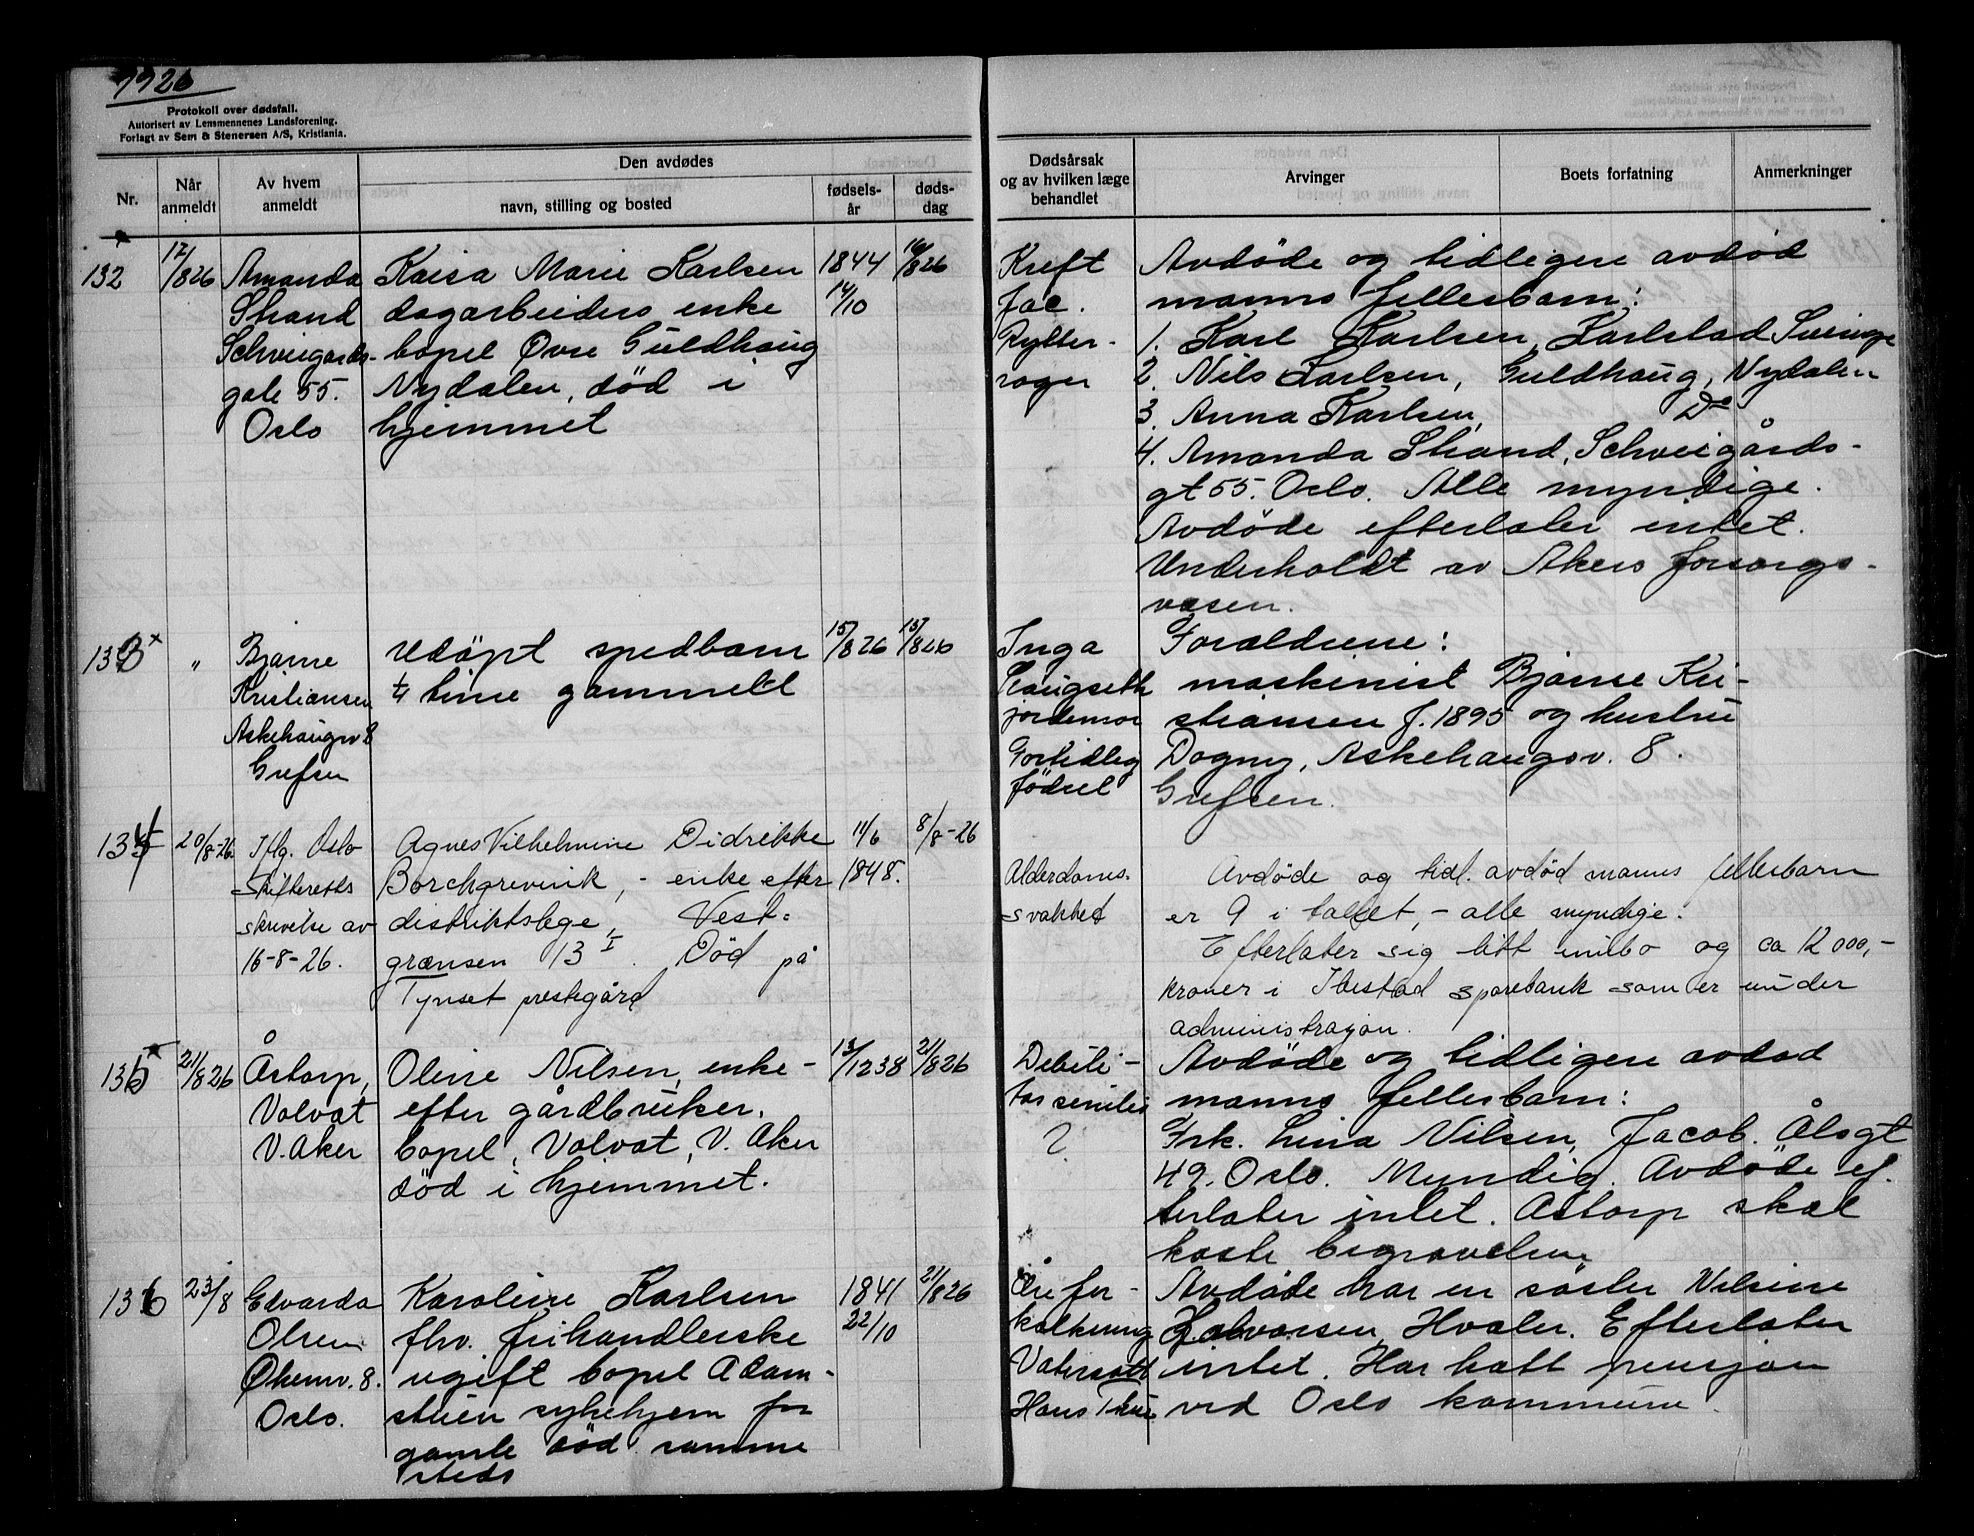 1926
Protokoll over dødsfall.
Autorisert av Lensmennenes Landsforening.
Forlagt av Sem & Stenersen A/S, Kristiania.
Nr.
Når anmeldt
Av hvem anmeldt
Den avdødes
navn, stilling og bosted
fødsels-år
døds-dag
Dødsårsak og av hvilken læge behandlet
Arvinger
Boets forfatning
Anmerkninger
132
17/8 26
Amanda
Strand
Schveigards-
gate 55.
Oslo
Kaisa Marie Karlsen
dagarbeiders enke
bopel Øvre Guldhaug
Nydalen, død i
hjemmet
1844
14/10
16/8 26
Kreft
Jac.
Rytter-
rager
Avdøde og tidligere avdød
manns fellesbarn:
1. Karl Karlsen, Karlstad Sverige
2. Nils Karlsen, Guldhaug, Nydalen
3. Anna Karlsen, Do "
4. Amanda Strand, Schveigårds-
gt 55. Oslo. Alle myndige.
Avdøde efterlater intet.
Underholdt av Akers forsorgs-
vesen.
133
"
Bjarne
Kristiansen
Askehaugv 8
Grefsen
Udøpt spedbarn
¼ time gammelt
15/8 26
15/8 26
Inga
Haugseth
jordemor
Fortidlig
fødsel
Foreldrene:
maskinist Bjarne Kri-
stiansen f. 1895 og hustru
Dagny, Askehaugsv. 8.
Grefsen.
134
20/8-26
Iflg. Oslo
Skifteretts
skrivelse av
16-8-26.
Agnes Vilhelmine Didrikke
Borchgrevink, - enke efter
distriktslege, Vest-
grænsen 13 I. Død på
Tynset prestegård
11/6
1848.
8/8-26
Alderdoms-
svakhet
Avdøde og tidl. avdød manns fellesbarn
er 9 i tallet, - alle myndige.
Efterlater sig litt innbo og ca 12 000,-
kroner i Ibestad sparebank som er under
administrasjon.
135
21/8 26
Åstorp,
Volvat
V. Aker
Oline Nilsen, enke-
efter gårdbruker.
bopel, Volvat, V. Aker
død i hjemmet.
13/12 38
21/8 26
Debili-
tas senilis
?
Avdøde og tidligere avdød
manns fellesbarn:
Frk. Lina Nilsen, Jacob. Ålsgt
49. Oslo. Myndig. Avdøde ef-
terlater intet. Åstorp skal
koste begravelsen,
136
23/8
Edvarda
Olsen
Økernv. 8.
Oslo.
Karoline Karlsen
fhv. frihandlerske
ugift bopel Adam-
stuen sykehjem for
gamle død samme
steds
1841
22/10
21/8 26
Åre for-
kalkning
Vatersott
Hans Thue
Avdøde har en søster Nilsine
Halvorsen, Hvaler. Efterlater
intet. Har hatt pensjon
ved Oslo kommune.